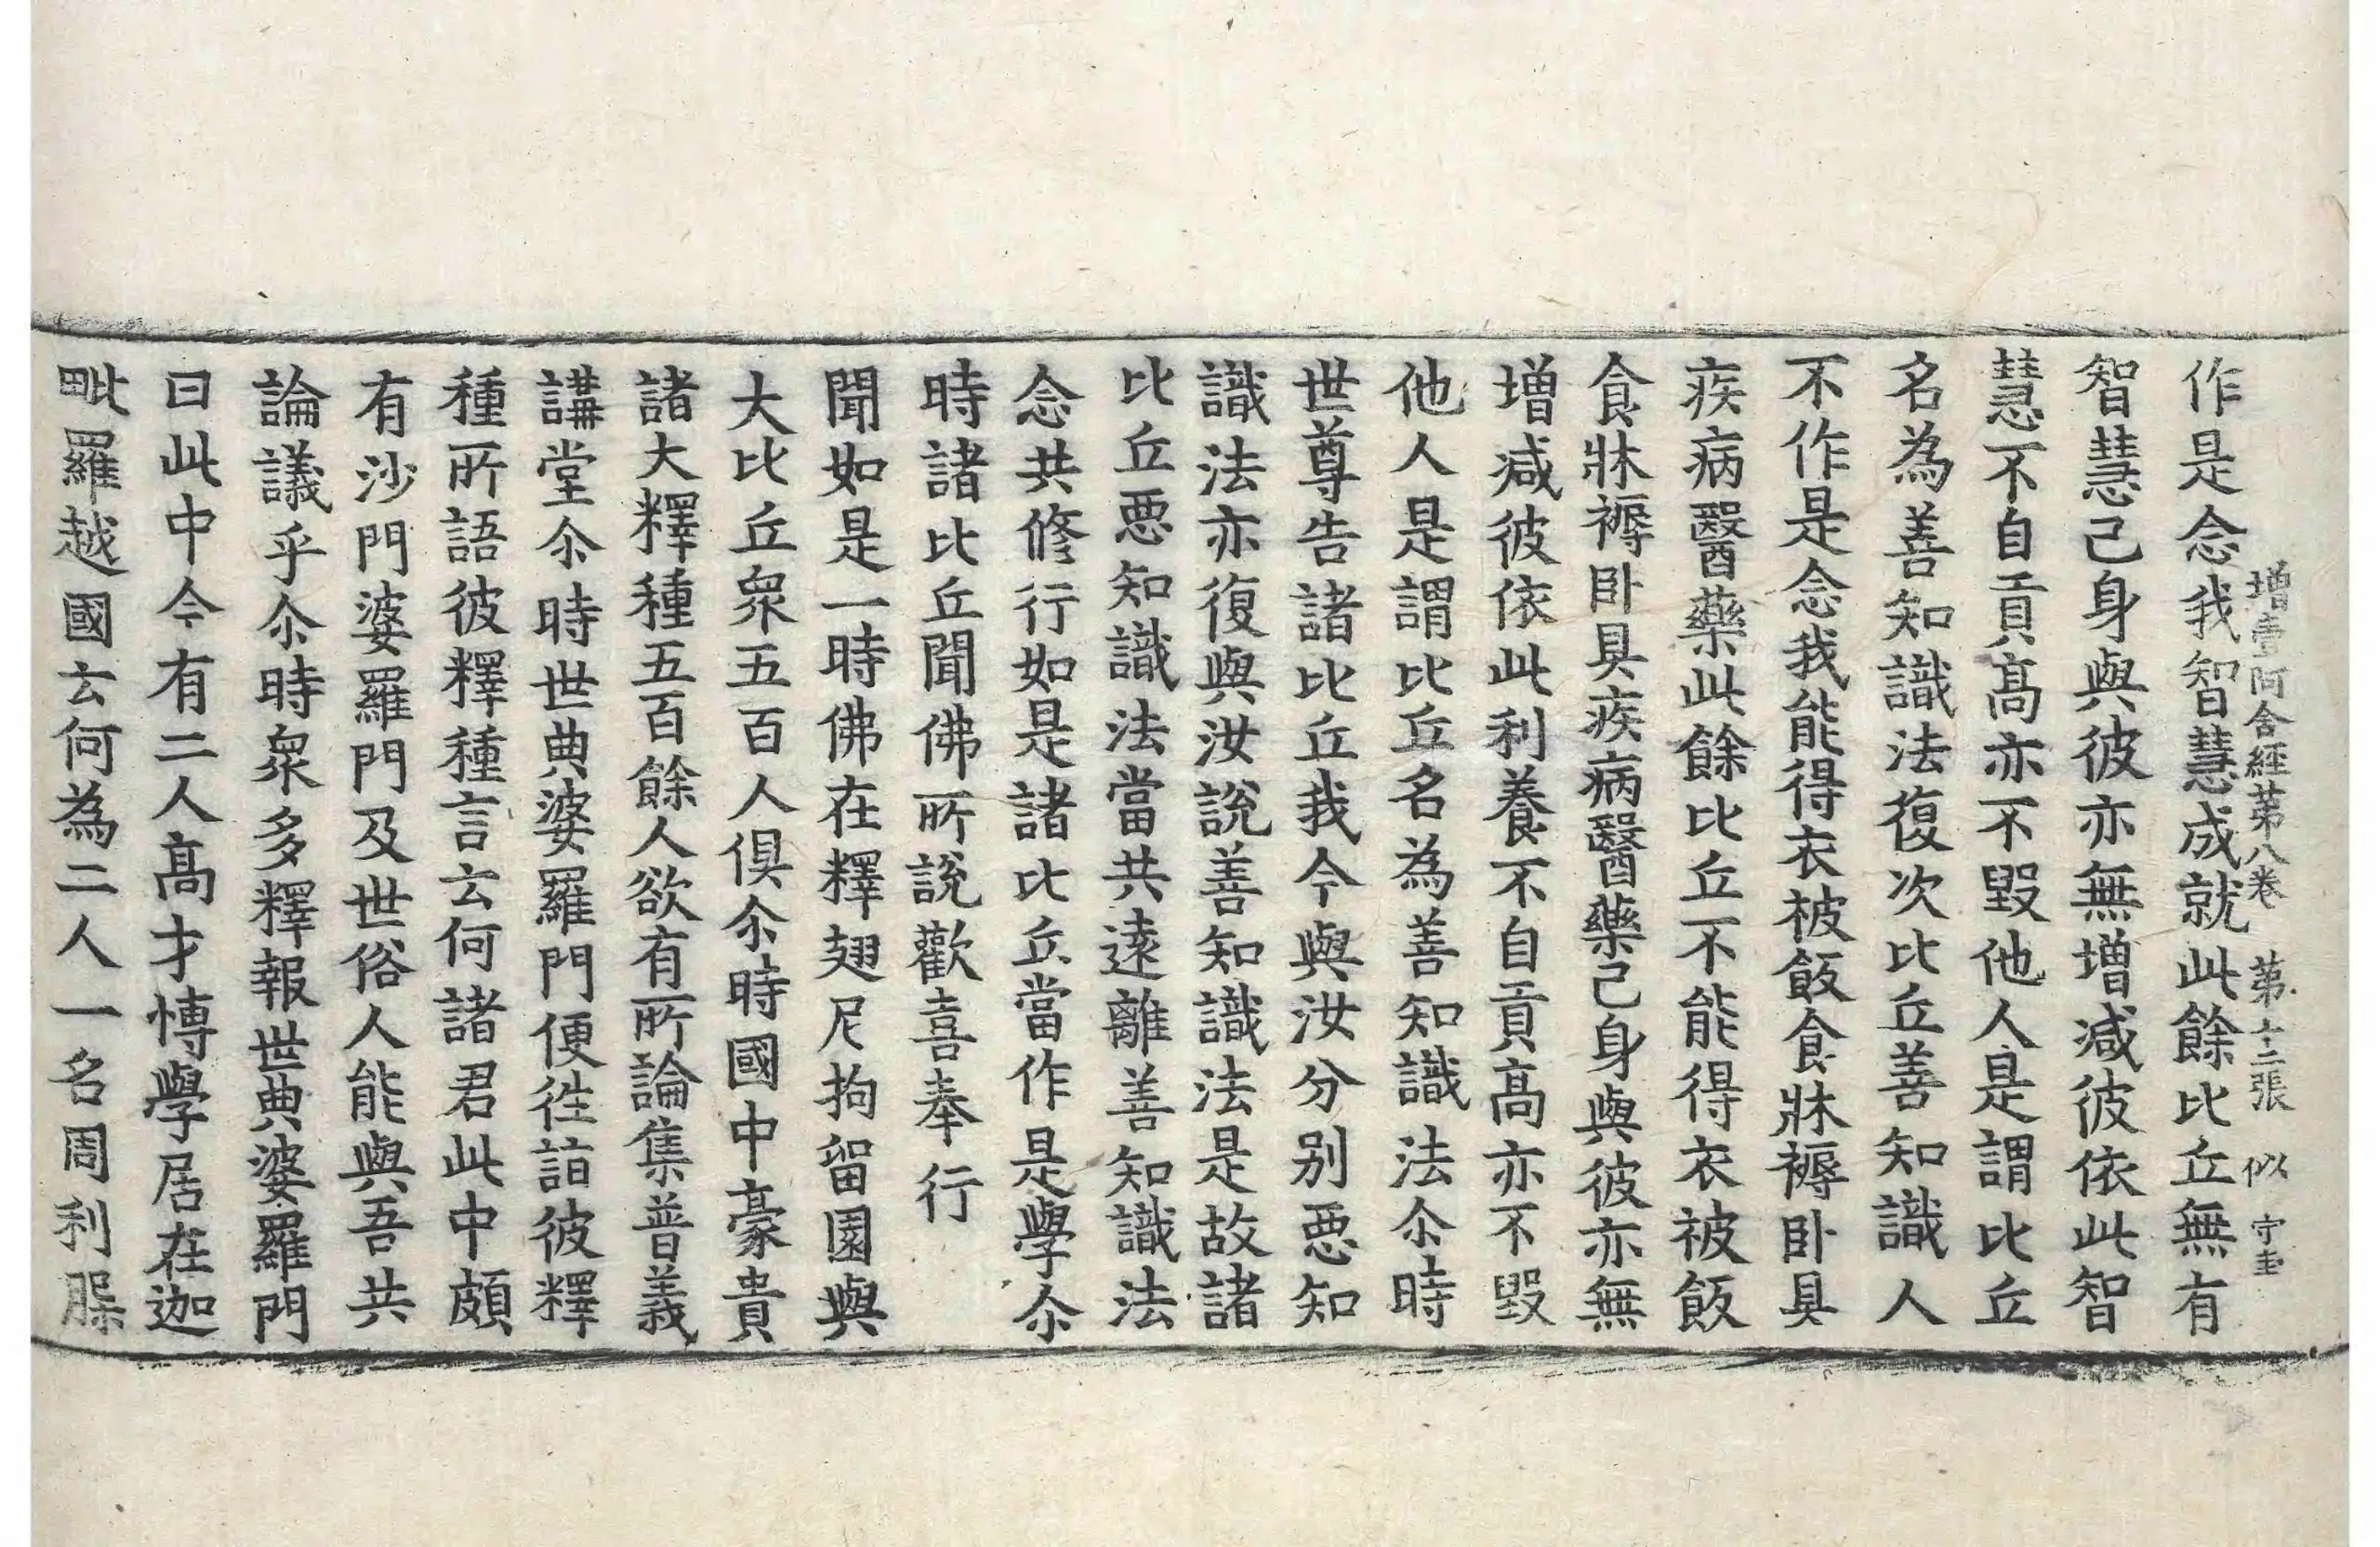 增壹阿含經第八卷 第十二張 似 守圭
作是念我智慧成就此餘比丘無有
智慧己身與彼亦無增减彼依此智
慧不自貢髙亦不毀他人是謂比丘
名為善知識法復次比丘善知識人
不作是念我能得衣被飯食牀褥卧具
疾病醫藥此餘比丘不能得衣被飯
食牀褥卧具疾病醫藥己身與彼亦無
增减彼依此利養不自貢髙亦不毀
他人是謂比丘名為善知識法尒時
世尊告諸比丘我今與汝分别惡知
識法亦復與汝說善知識法是故諸
比丘惡知識法當共遠離善知識法
念共修行如是諸比丘當作是學尒
時諸比丘聞佛所說歡喜奉行
聞如是一時佛在釋翅尼拘留園與
大比丘衆五百人俱尒時國中豪貴
諸大釋種五百餘人欲有所論集普義
講堂尒時世典婆羅門便往詣彼釋
種所語彼釋種言云何諸君此中頗
有沙門婆羅門及世俗人能與吾共
論議乎尒時衆多釋報世典婆羅門
曰此中今有二人髙才博學居在迦
毗羅越國云何為二人一名周利槃